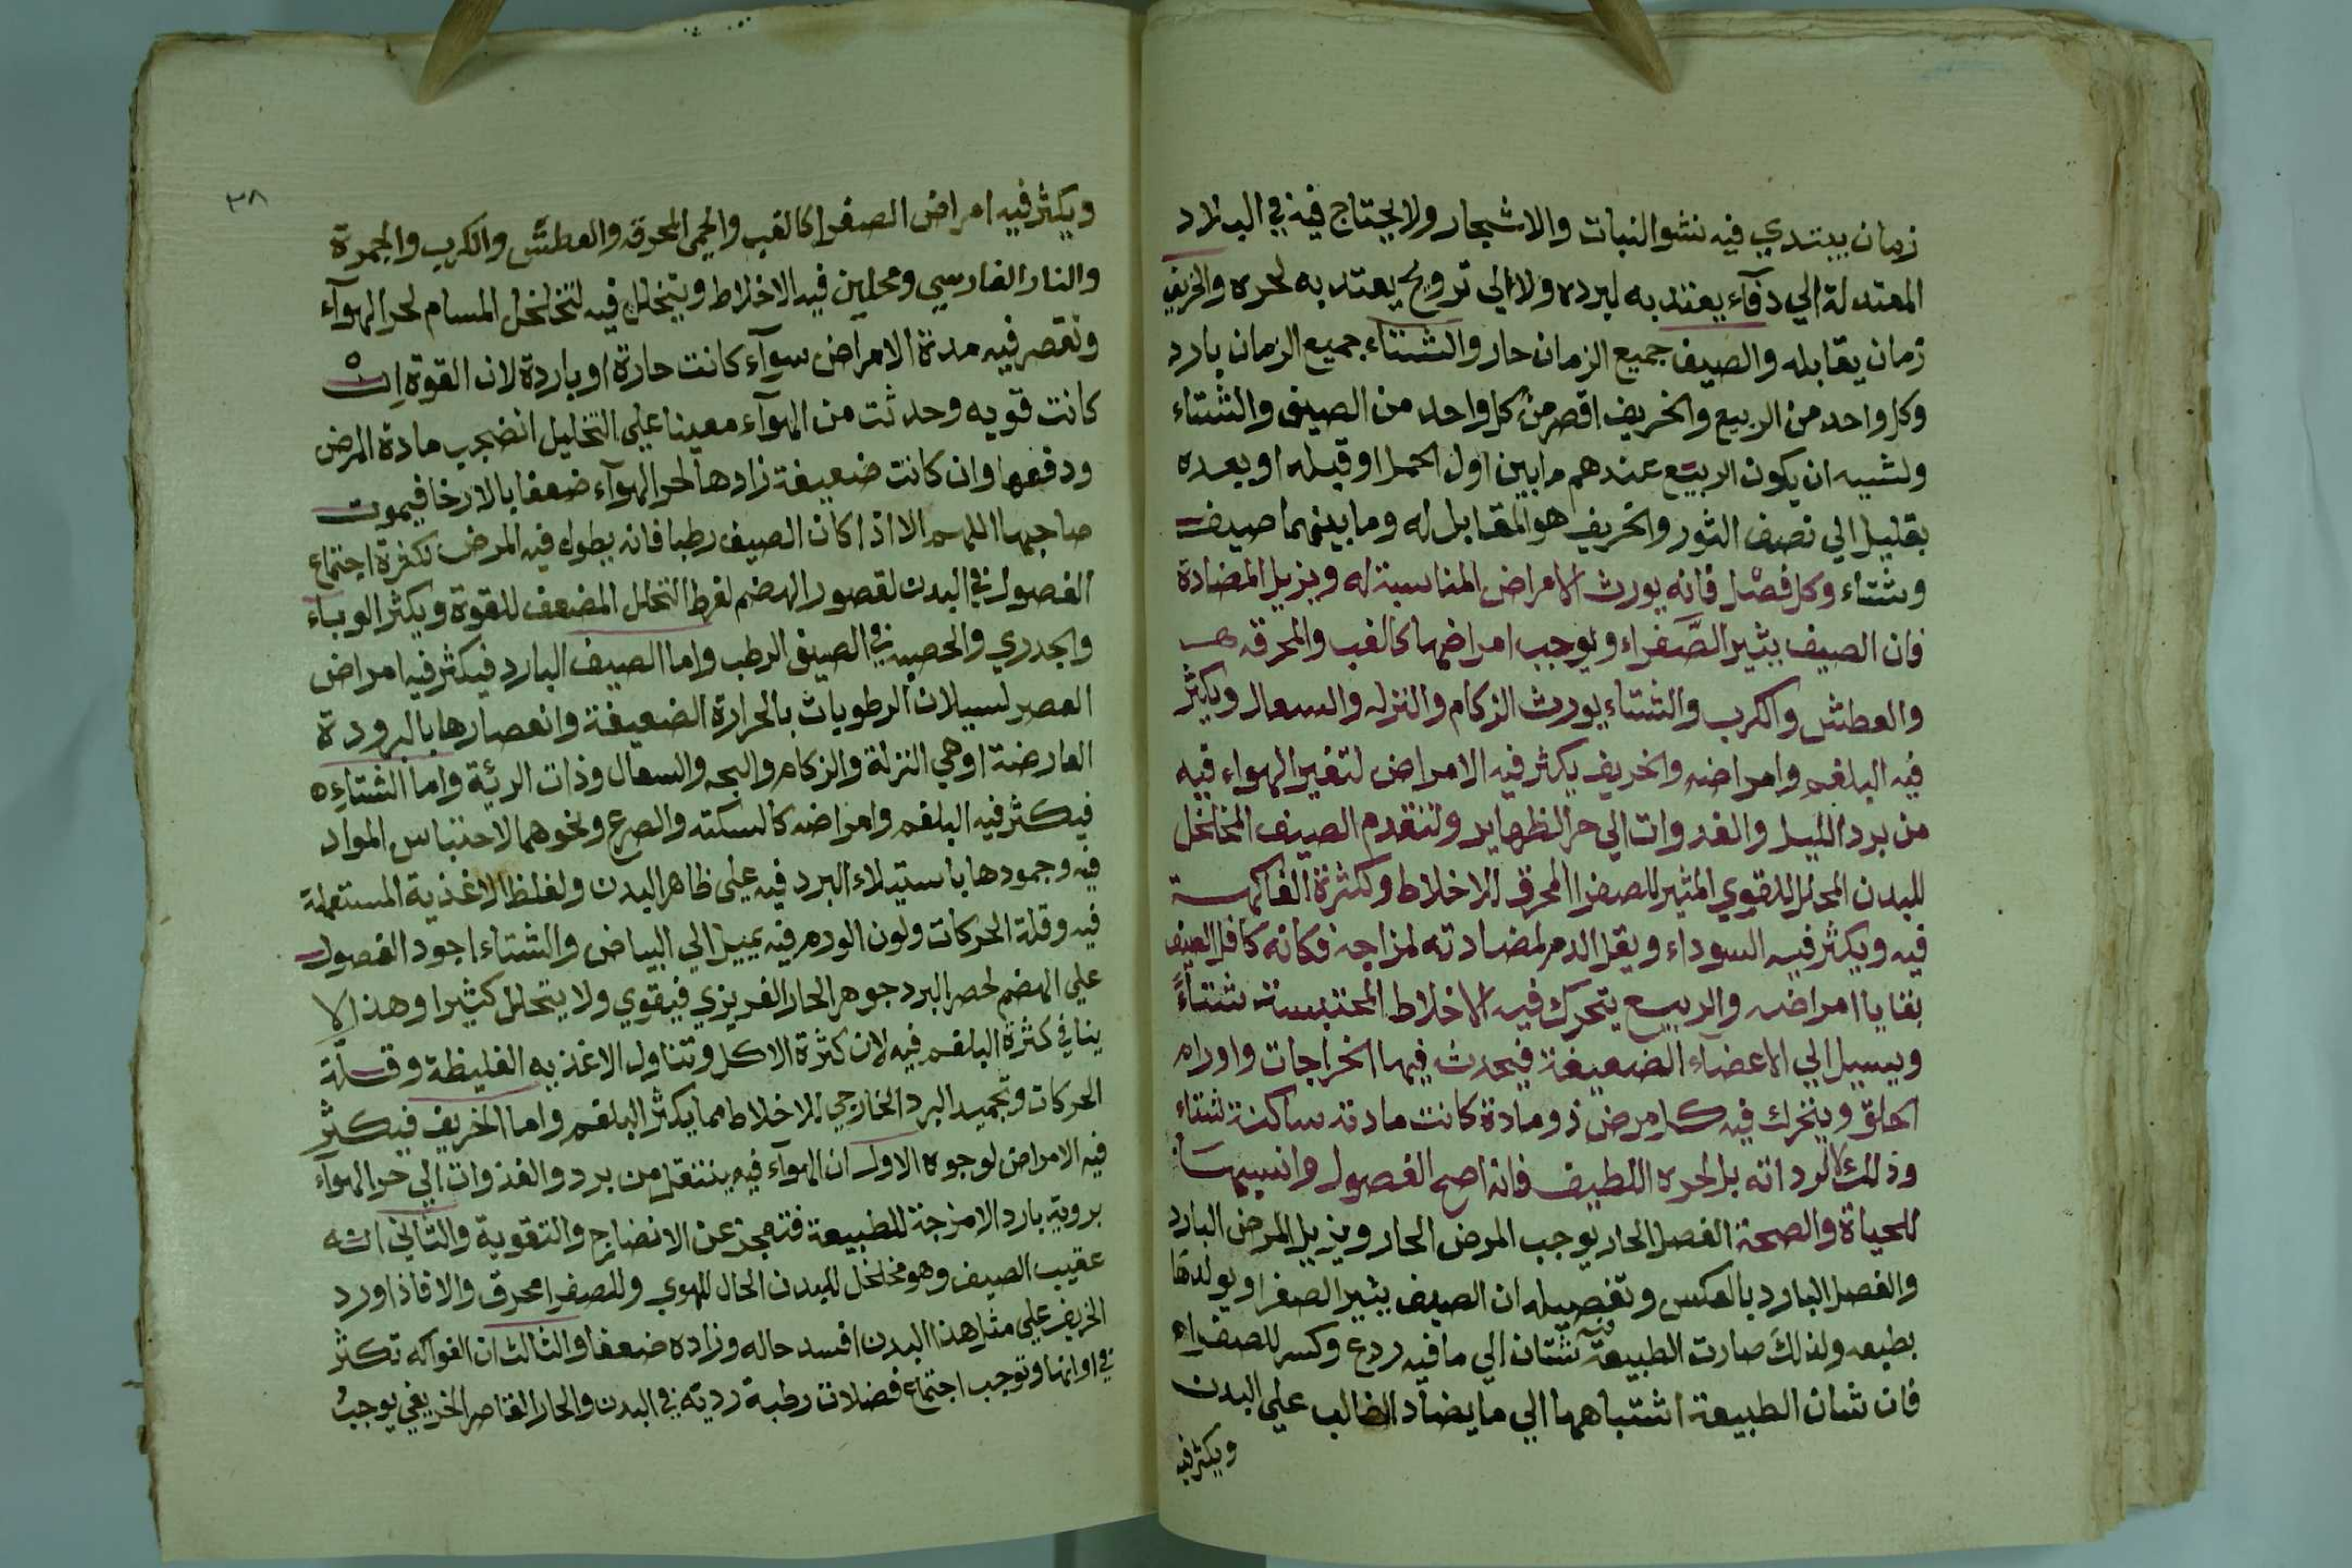 زمان يبتدي فيه نشو النبات والاشجار ولا يحتاج فيه في البلاد
المعتدلة الي دفآء يعتد به لبرده ولا الي ترويح يعتد به لحره والخريف
زمان يقابله والصيف جميع الزمان حار والشتاء جميع الزمان بارد
وكل واحد من الربيع والخريف اقصر من كل واحد من الصيف والشتاء
ولشيه ان يكون الربيع عندهم ما بين اول الحمل او قبله او بعده
بقليل الي نصف الثور والخريف هو المقابل له وما بينهما صيف
وشتاء وكل فصل فانه يورث الامراض المناسبة له ويزيل المضادة
فان الصيف يثير الصَّفراء ويوجب امراضها كالغب والمحرقه
والعطش والكرب والشتاء يورث الزكام والنزله والسعال ويكثر
فيه البلغم وامراضه والخريف يكثر فيه الامراض لتغير الهواء فيه
من برد الليل والغدوات الي حر الظهاير ولتقدم الصيف المخلخل
للبدن المحلل للقوي المثير للصفرا المحرق للاخلاط وكثرة الفاكهة
فيه ويكثر فيه السوداء ويقل الدم لمضادته لمزاجه فكانه كافل الصيف
بقايا امراضه والربيع يتحرك فيه الاخلاط المحتبسة شتآءً
ويسيل الي الاعضآء الضعيفة فيحدث فيها الخراجات واورام
الحلق ويتحرك فيه كل مرض ذو مادة كانت مادته ساكنة شتاء
وذلك لا لرداته بل لحره اللطيف فانه اصح الفصول وانسبها
للحياة والصحة الفصل الحار يوجب المرض الحار ويزيل المرض البارد
والفصل البارد بالعكس وتفصيله ان الصيف يثير الصفرا ويولدها
بطبعه ولذلك صارت الطبيعة فيه تشتاق الي ما فيه ردع وكسر للصفراء
فان شان الطبيعة اشتباهها الي ما يضاد الغالب علي البدن
ويكثر فيه
٣٨
ويكثر فيه امراض الصفرا كالغب والحمي المحرقه والعطش والكرب والجمرة
والنار الفارسي وتحليل فيه الاخلاط ويتخلل فيه لتخلخل المسام لحر الهوآء
وتقصر فيه مدة الامراض سوآء كانت حارة او باردة لان القوة ان
كانت قويه وحدثت من الهوآء معينا علي التحليل انضجت مادة المرض
ودفعها وان كانت ضعيفة زادها لحر الهوآء ضعفا بالارخا فيموت
صاحبها اللهم الا اذا كان الصيف رطبا فانه يطول فيه المرض لكثرة اجتماع
الفصول في البدن لقصور الهضم لفرط التحلل المضعف للقوة ويكثر الوباء
والجدري والحصبه في الصيف الرطب واما الصيف البارد فيكثر فيه امراض
العصر لسيلان الرطوبات بالحرارة الضعيفة وانعصارها بالبرودة
العارضة اوهي النزلة والزكام والبحه والسعال وذات الرئة واما الشتاء
فيكثر فيه البلغم وامراضه كالسكته والصرع ونحوهما لاحتباس المواد
فيه وجمودها باستيلاء البرد فيه علي ظاهر البدن ولغلظ الاغذية المستعملة
فيه وقلة الحركات ولون الورم فيه يميل الي البياض والشتاء اجود الفصول
علي الهضم لحصر البرد جوهر الحار الغريزي فيقوي ولا يتحلل كثيرا وهذا لا
ينافي كثرة البلغم فيه لان كثرة الاكل وتناول الاغذيه الغليظة وقلّة
الحركات وتجميد البرد الخارجي للاخلاط مما يكثر البلغم واما الخريف فيكثر
فيه الامراض لوجوه الاول ان الهوآء فيه ينتقل من برد والغذوات الي حر الهوآء
برويه بارد الامزجة للطبيعة فتعجز عن الانضاج والتقوية والثاني انه
عقيب الصيف وهو مخلخل للبدن الحال للهوي وللصفرا محرق والا فاذا ورد
الخريف علي مثل هذا البدن افسد حاله وزاده ضعفا والثالث ان الفواكه تكثر
في اوانها وتوجب اجتماع فضلات رطبة رديه في البدن والحار القاصر الخريفي يوجب